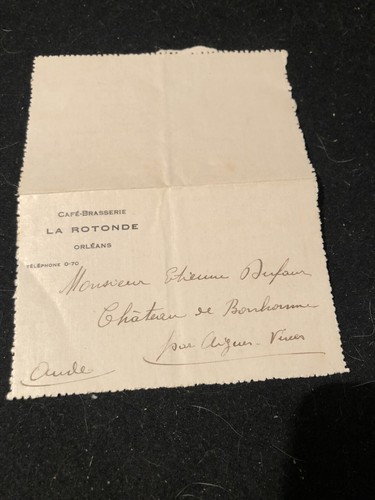 CAFÉ-BRASSERIE
LA ROTONDE
ORLÉANS
TÉLÉPHONE 0-70
Monsieur Etienne Dufaur
Château de Bonhomme
par Aigues-Vives
Aude